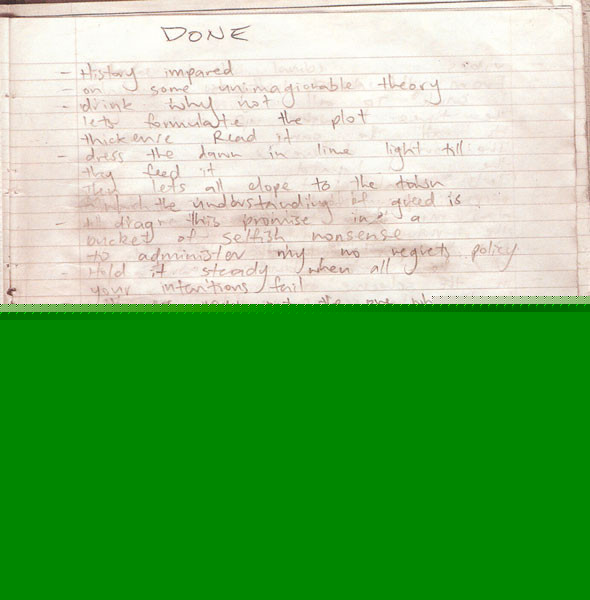 DONE
- History impared
- on some unimagionable theory
- drink why not
lets formulate the plot
thickense Read it
- dress the dawn in lime light till
they feed it
lets all elope to the
the understanding of greed is
- diagn this promise in a
bucket of selfish nonsense
to administer my no regrets policy
- Hold it steady when all
your intantions fail